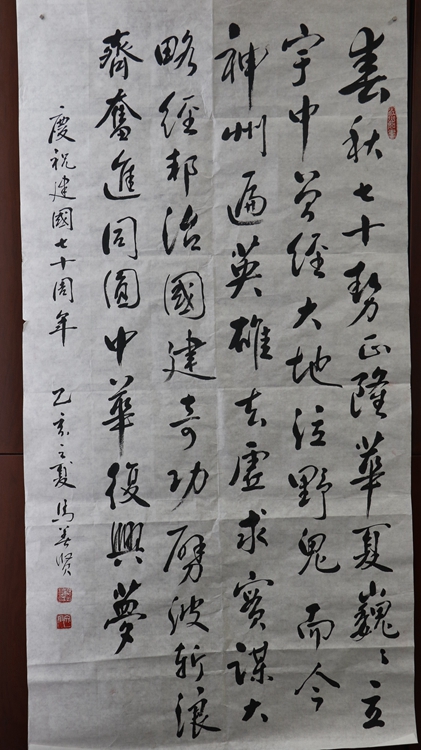 春秋七十勢正隆華夏巍々立
宇中曾經大地泣野鬼而今
神州遍英雄去虛求實謀大
略經邦治國建奇功劈波斬浪
齊奮進同圓中華復興夢
慶祝建國七十周年 己亥之夏 馬善賢